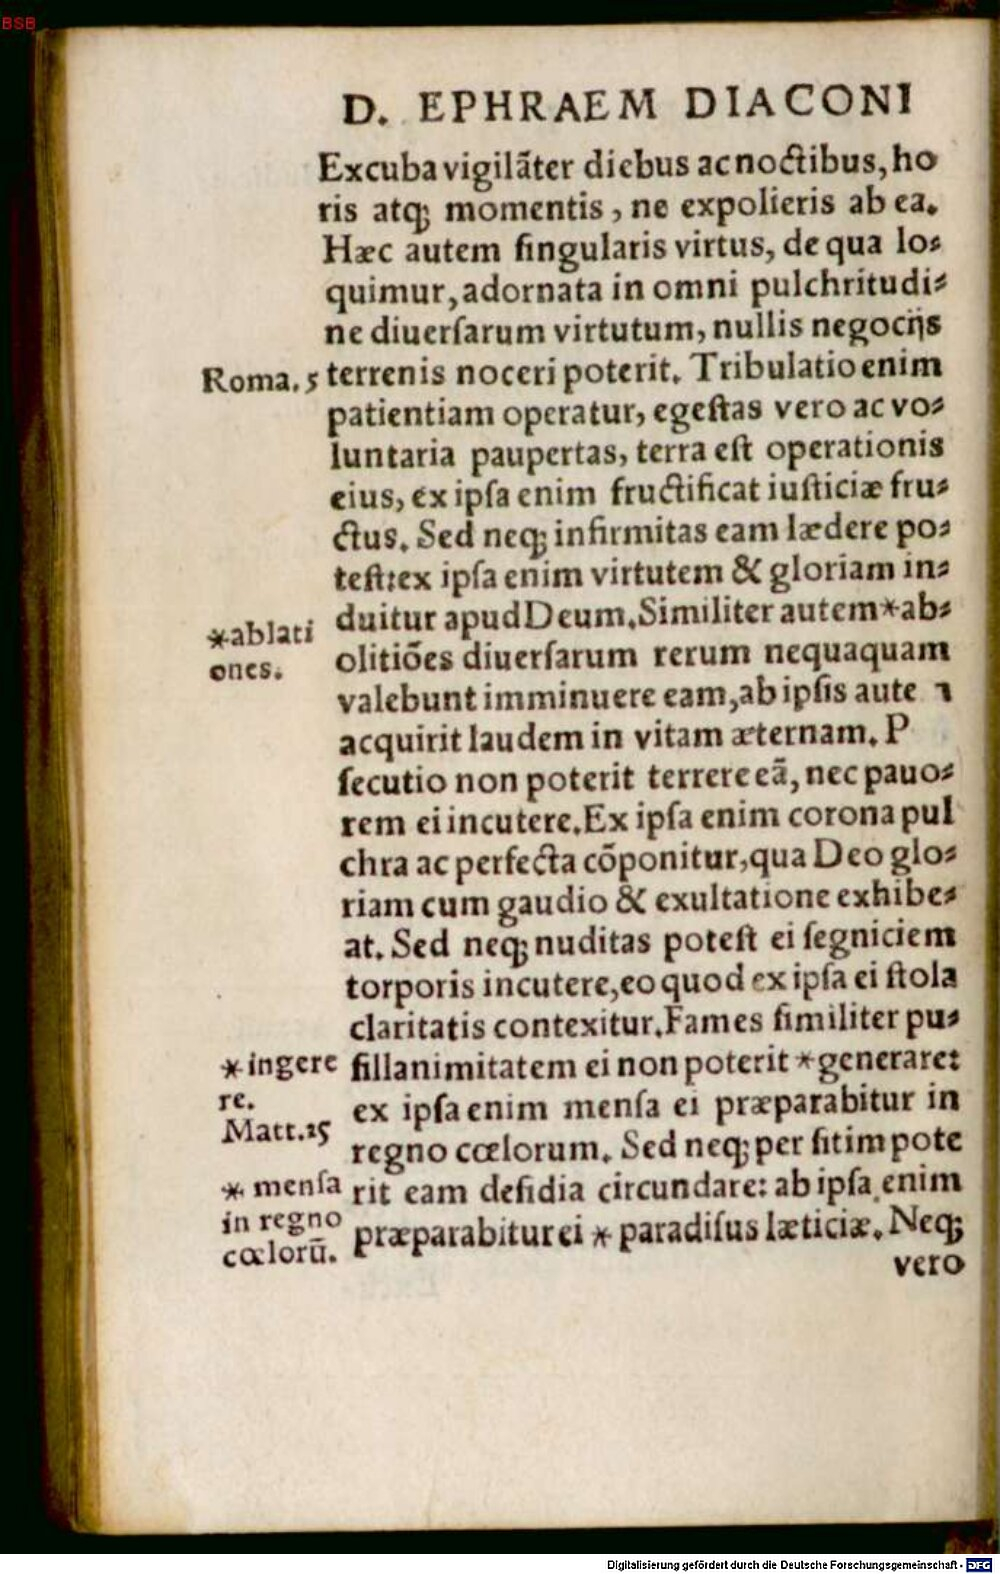 BSB
D. EPHRAEM DIACONI
Excuba vigilãter diebus ac noctibus, ho
ris atq; momentis, ne expolieris ab ea.
Hæc autem ſingularis virtus, de qua lo⸗
quimur, adornata in omni pulchritudi⸗
ne diuerſarum virtutum, nullis negocijs
Roma. 5
terrenis noceri poterit. Tribulatio enim
patientiam operatur, egeſtas vero ac vo⸗
luntaria paupertas, terra eſt operationis
eius, ex ipſa enim fructificat iuſticiæ fru⸗
ctus. Sed neq; infirmitas eam lædere po⸗
teſt: ex ipſa enim virtutem & gloriam in⸗
duitur apud Deum. Similiter autem *ab⸗
*ablati
ones.
olitiões diuerſarum rerum nequaquam
valebunt imminuere eam, ab ipſis aute
acquirit laudem in vitam æternam. P
ſecutio non poterit terrere eã, nec pauo⸗
rem ei incutere. Ex ipſa enim corona pul
chra ac perfecta cõponitur, qua Deo glo⸗
riam cum gaudio & exultatione exhibe⸗
at. Sed neq; nuditas poteſt ei ſegniciem
torporis incutere, eo quod ex ipſa ei ſtola
claritatis contexitur. Fames ſimiliter pu⸗
*ingere
re.
ſillanimitatem ei non poterit *generare:
ex ipſa enim menſa ei præparabitur in
Matt. 25
regno cœlorum. Sed neq; per ſitim pote
* menſa
in regno
cœlorũ.
rit eam deſidia circundare: ab ipſa enim
præparabitur ei * paradiſus læticiæ. Neq;
vero
Digitalisierung gefördert durch die Deutsche Forschungsgemeinschaft - DFG